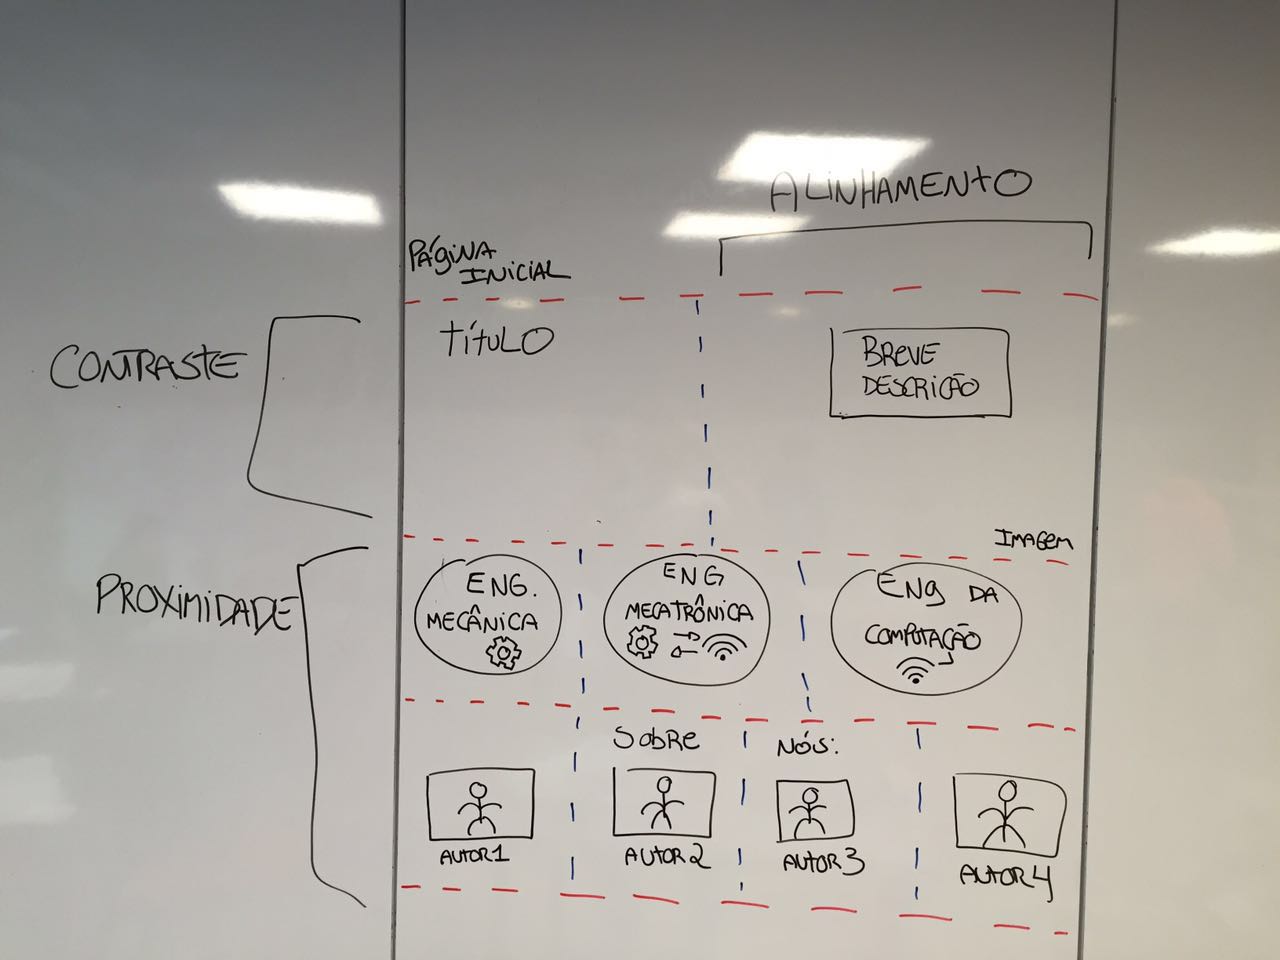 ALINHAMENTO
PÁGINA
INICIAL
CONTRASTE
TÍTULO
BREVE
DESCRIÇÃO
IMAGEM
PROXIMIDADE
ENG.
MECÂNICA
ENG
MECATRÔNICA
ENG DA
COMPUTAÇÃO
SOBRE NÓS:
AUTOR 1
AUTOR 2
AUTOR 3
AUTOR 4